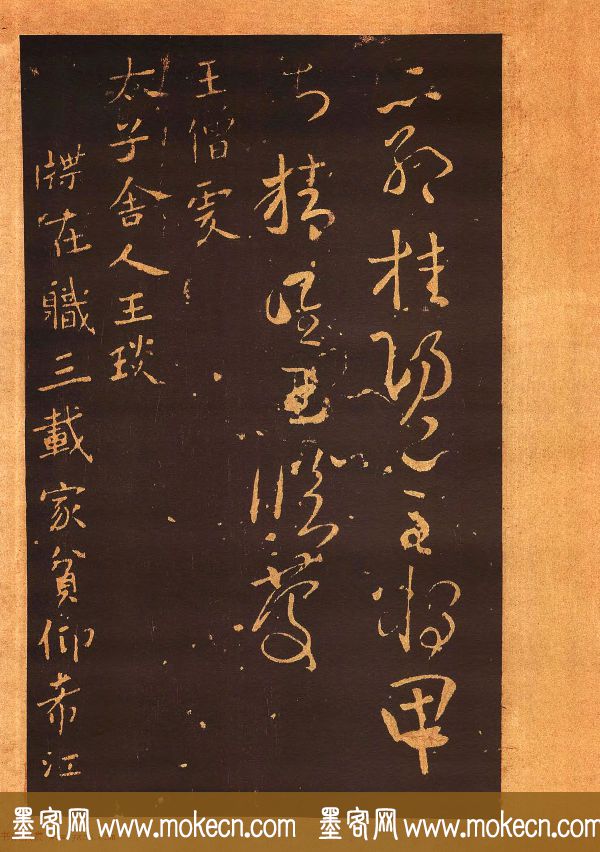 郭桂陽已至將甲
甚精唯王臨慶
王僧虔
太子舍人王琰
牒在職三載家貧仰希江
墨客网 www.mokecn.com 墨客网 www.mokecn.com